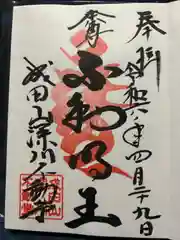 奉拝
令和六年四月二十九日
尊
不動明王
成田山深川不動尊